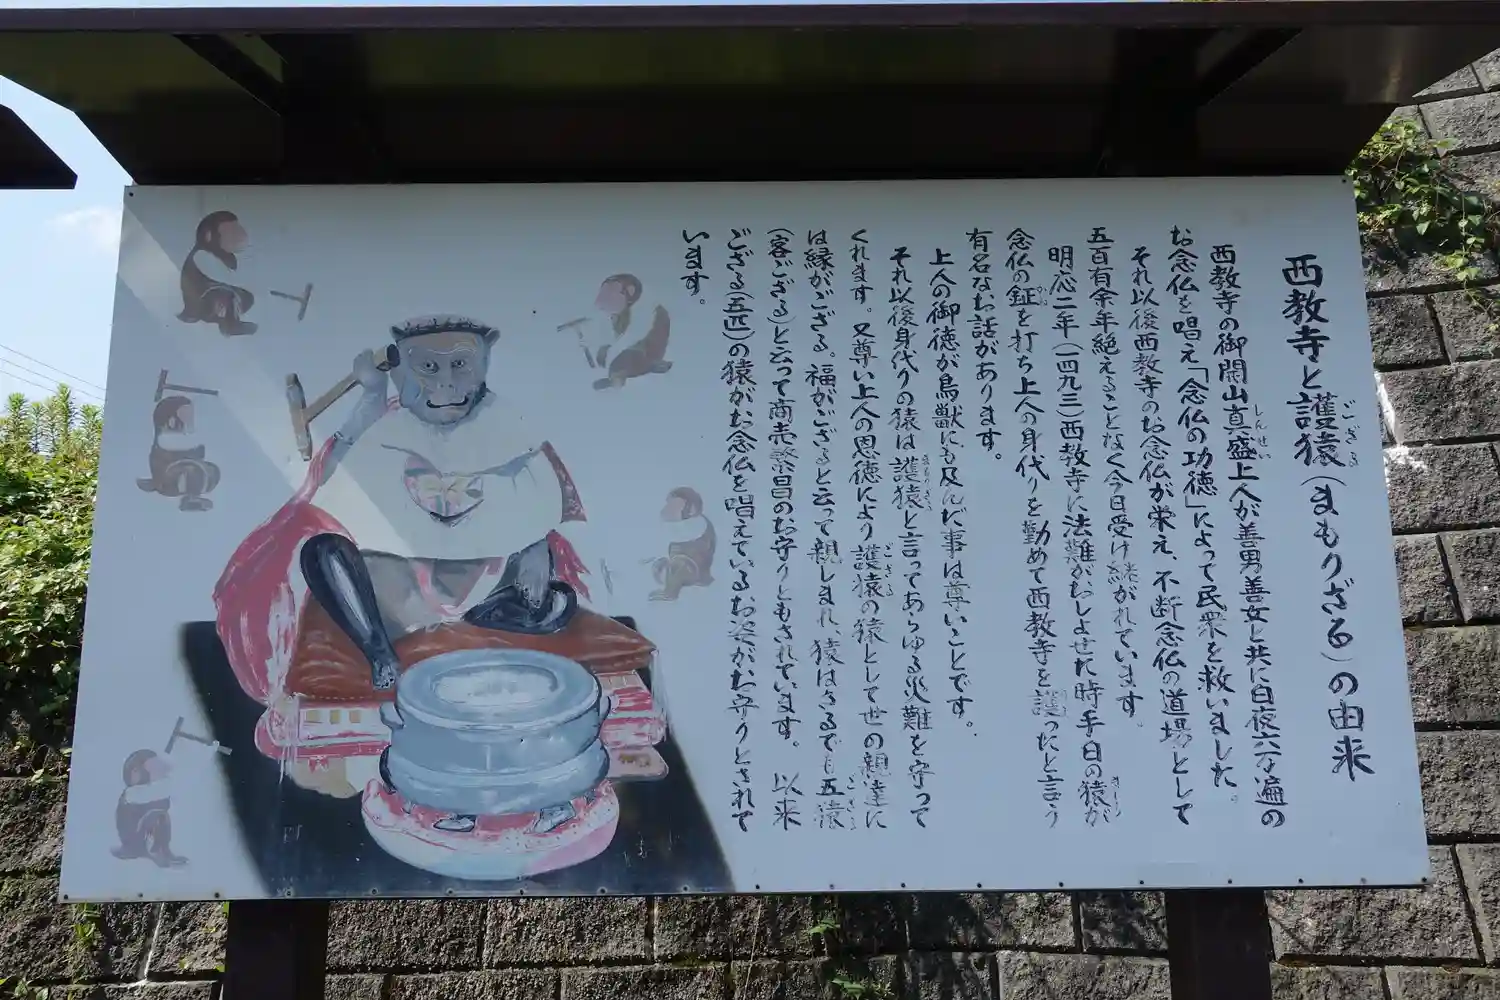 西教寺と護猿(まもりざる)の由来
ござる
西教寺の御開山真盛上人が善男善女と共に日夜六万遍の
しんせい
お念仏を唱え「念仏の功徳」によって民衆を救いました。
それ以後西教寺のお念仏が栄え、不断念仏の道場として
五百有余年絶えることなく今日受け継がれています。
明応二年(一四九三)西教寺に法難がおしよせた時手白の猿が
ましら
念仏の鉦を打ち上人の身代りを勤めて西教寺を護ったと言う
かね
有名なお話があります。
上人の御徳が鳥獣にも及んだ事は尊いことです。
それ以後身代りの猿は護猿と言ってあらゆる災難を守って
まもりざる
くれます。又尊い上人の恩徳により護猿の猿として世の親達に
ござる
は縁がござる。福がござると云って親しまれ、猿はさるでも五猿
ござる
(客ござる)と云って商売繁昌のお守りともされています。 以来
ござる(五匹)の猿がお念仏を唱えているお姿がお守りとされて
います。